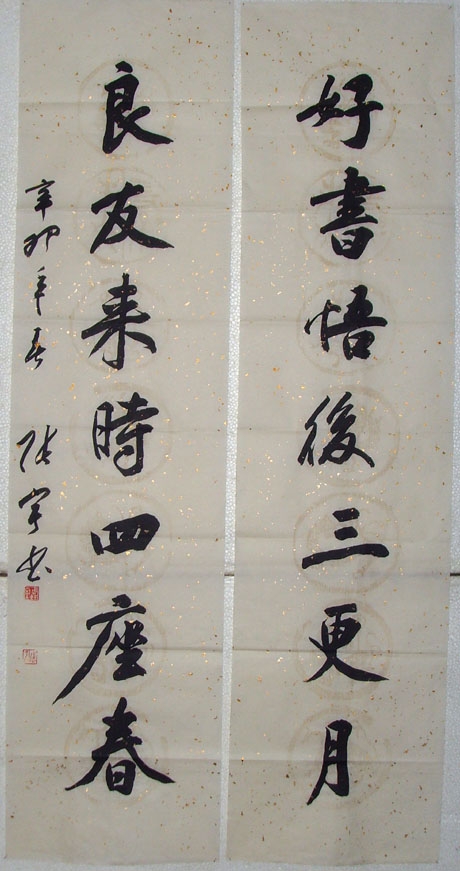 好書悟後三更月
良友来時四座春
辛卯年春